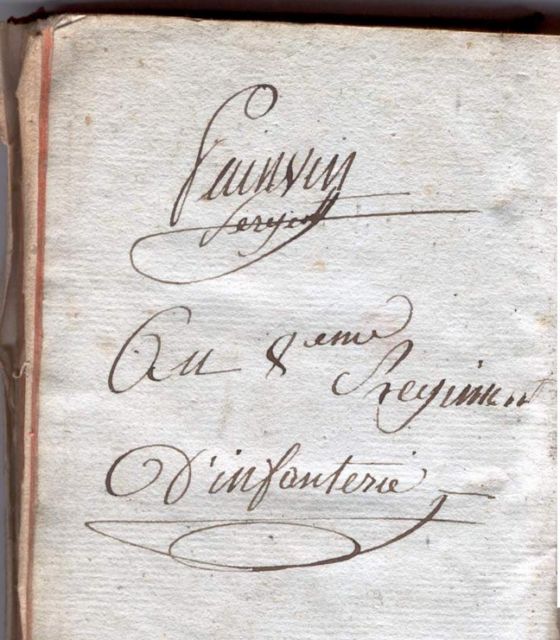 Painvin
Sergent
Au 8eme
Regiment
D'infanterie